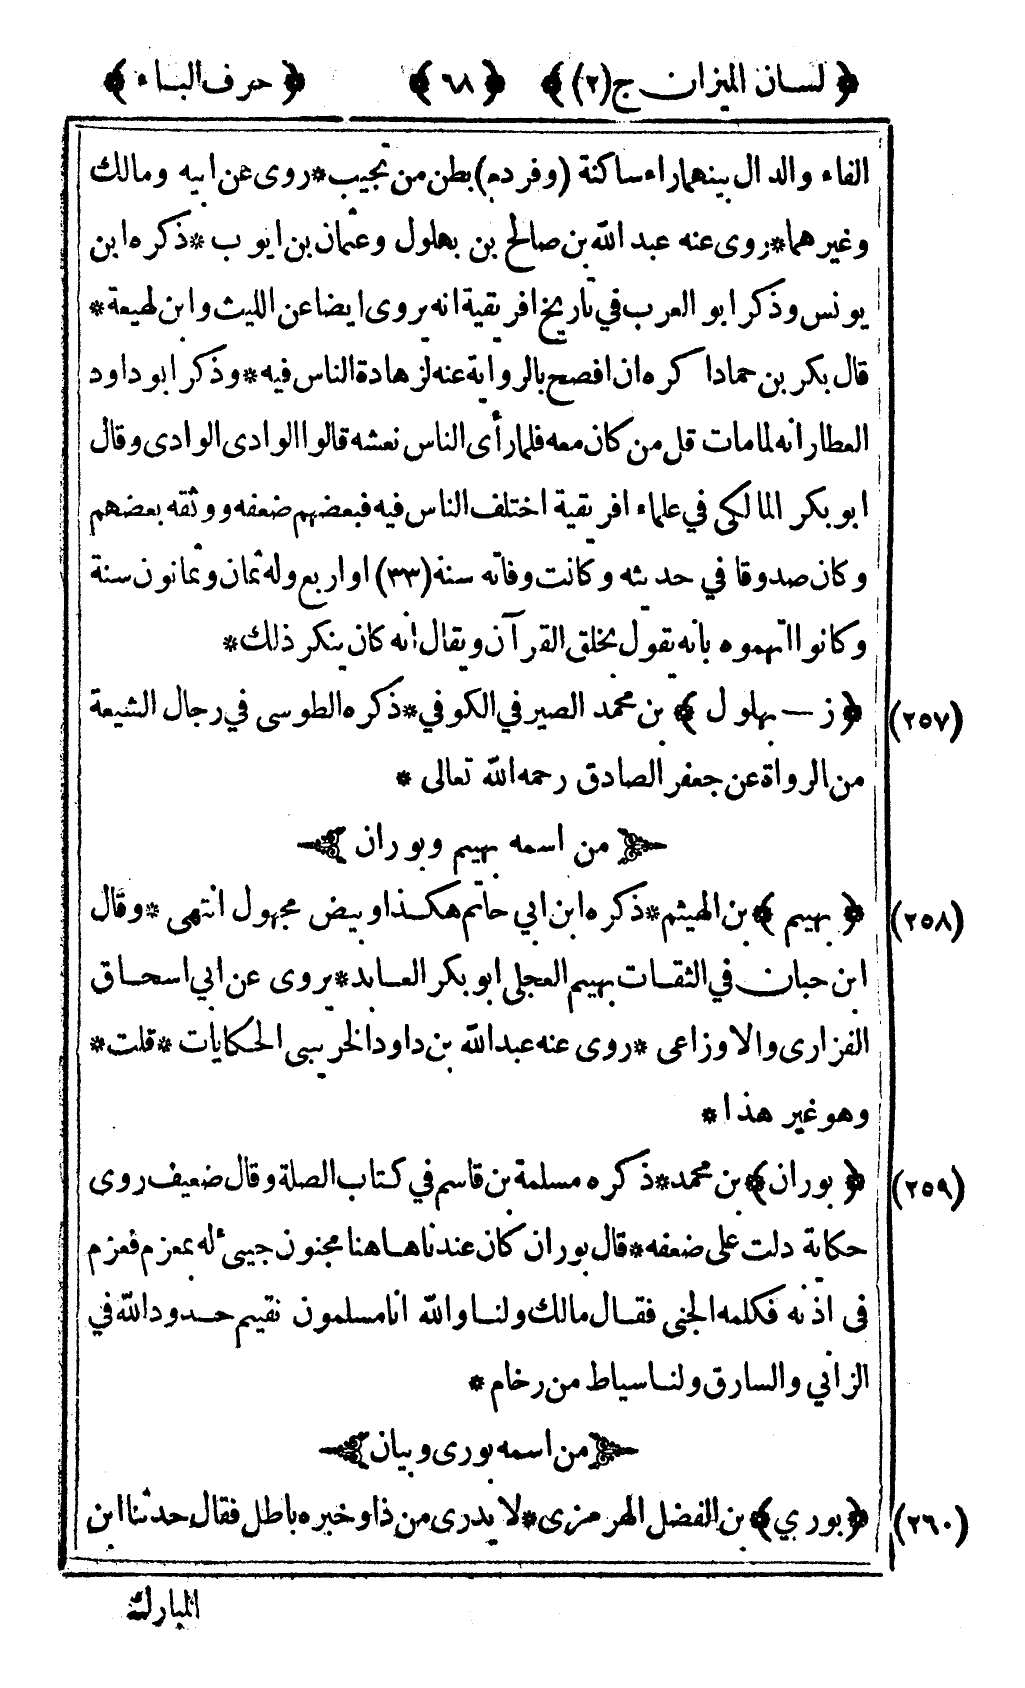 ﴿ لسان الميزان ج (٢) ﴾ ﴿ ٦٨ ﴾ ﴿ حرف الباء ﴾
الفاء والدال بينهما راء ساكنة (وفردم) بطن من تجيب * روى عن ابيه ومالك
وغيرهما * روى عنه عبد الله بن صالح بن بهلول وعثمان بن ايوب * ذكره ابن
يونس وذكر ابو العرب في تاريخ افريقية انه يروى ايضا عن الليث وابن لهيعة *
قال بكر بن حماد اكره ان افصح بالرواية عنه لزهادة الناس فيه * وذكر ابو داود
العطار انه لما مات قل من كان معه فلما رأى الناس نعشه قالوا الوادى الوادى وقال
ابو بكر المالكى في علماء افريقية اختلف الناس فيه فبعضهم ضعفه ووثقه بعضهم
وكان صدوقا في حديثه وكانت وفاته سنة (٣٣) او اربع وله ثمان وثمانون سنة
وكانوا اتهموه بانه يقول بخلق القرآن ويقال انه كان ينكر ذلك *
(٢٥٧) ﴿ ز — بهلول ﴾ بن محمد الصيرفي الكوفي * ذكره الطوسى في رجال الشيعة
من الرواة عن جعفر الصادق رحمه الله تعالى *
من اسمه بهيم وبوران
(٢٥٨) ﴿ بهيم ﴾ بن الهيثم * ذكره ابن ابي حاتم هكذا وبيض مجهول انتهى * وقال
ابن حبان في الثقات بهيم العجلى ابو بكر العابد * يروى عن ابي اسحاق
الفزارى والاوزاعى * روى عنه عبد الله بن داود الخريبى الحكايات * قلت *
وهو غير هذا *
(٢٥٩) ﴿ بوران ﴾ بن محمد * ذكره مسلمة بن قاسم في كتاب الصلة وقال ضعيف روى
حكاية دلت على ضعفه * قال بوران كان عندنا هاهنا مجنون جيىء له بمعزم فعزم
فى اذنه فكلمه الجنى فقال مالك ولنا والله انا مسلمون نقيم حدود الله في
الزاني والسارق ولنا سياط من رخام *
من اسمه بورى وبيان
(٢٦٠) ﴿ بوري ﴾ بن الفضل الهرمزى * لا يدرى من ذا وخبره باطل فقال حدثنا ابن
المبارك